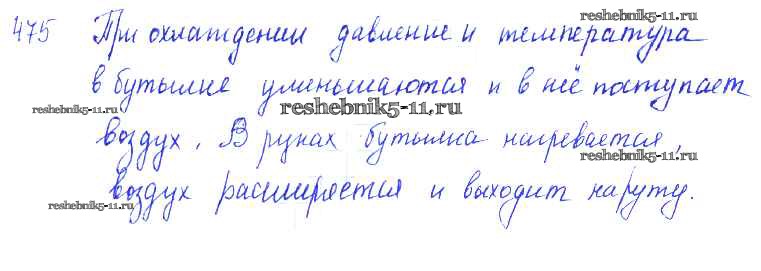 reshebnik5-11.ru
475 При охлаждении давление и температура
в бутылке уменьшаются и в неё поступает
reshebnik5-11.ru reshebnik5-11.ru
воздух. В руках бутылка нагревается,
reshebnik5-11.ru
воздух расширяется и выходит наружу.
reshebnik5-11.ru